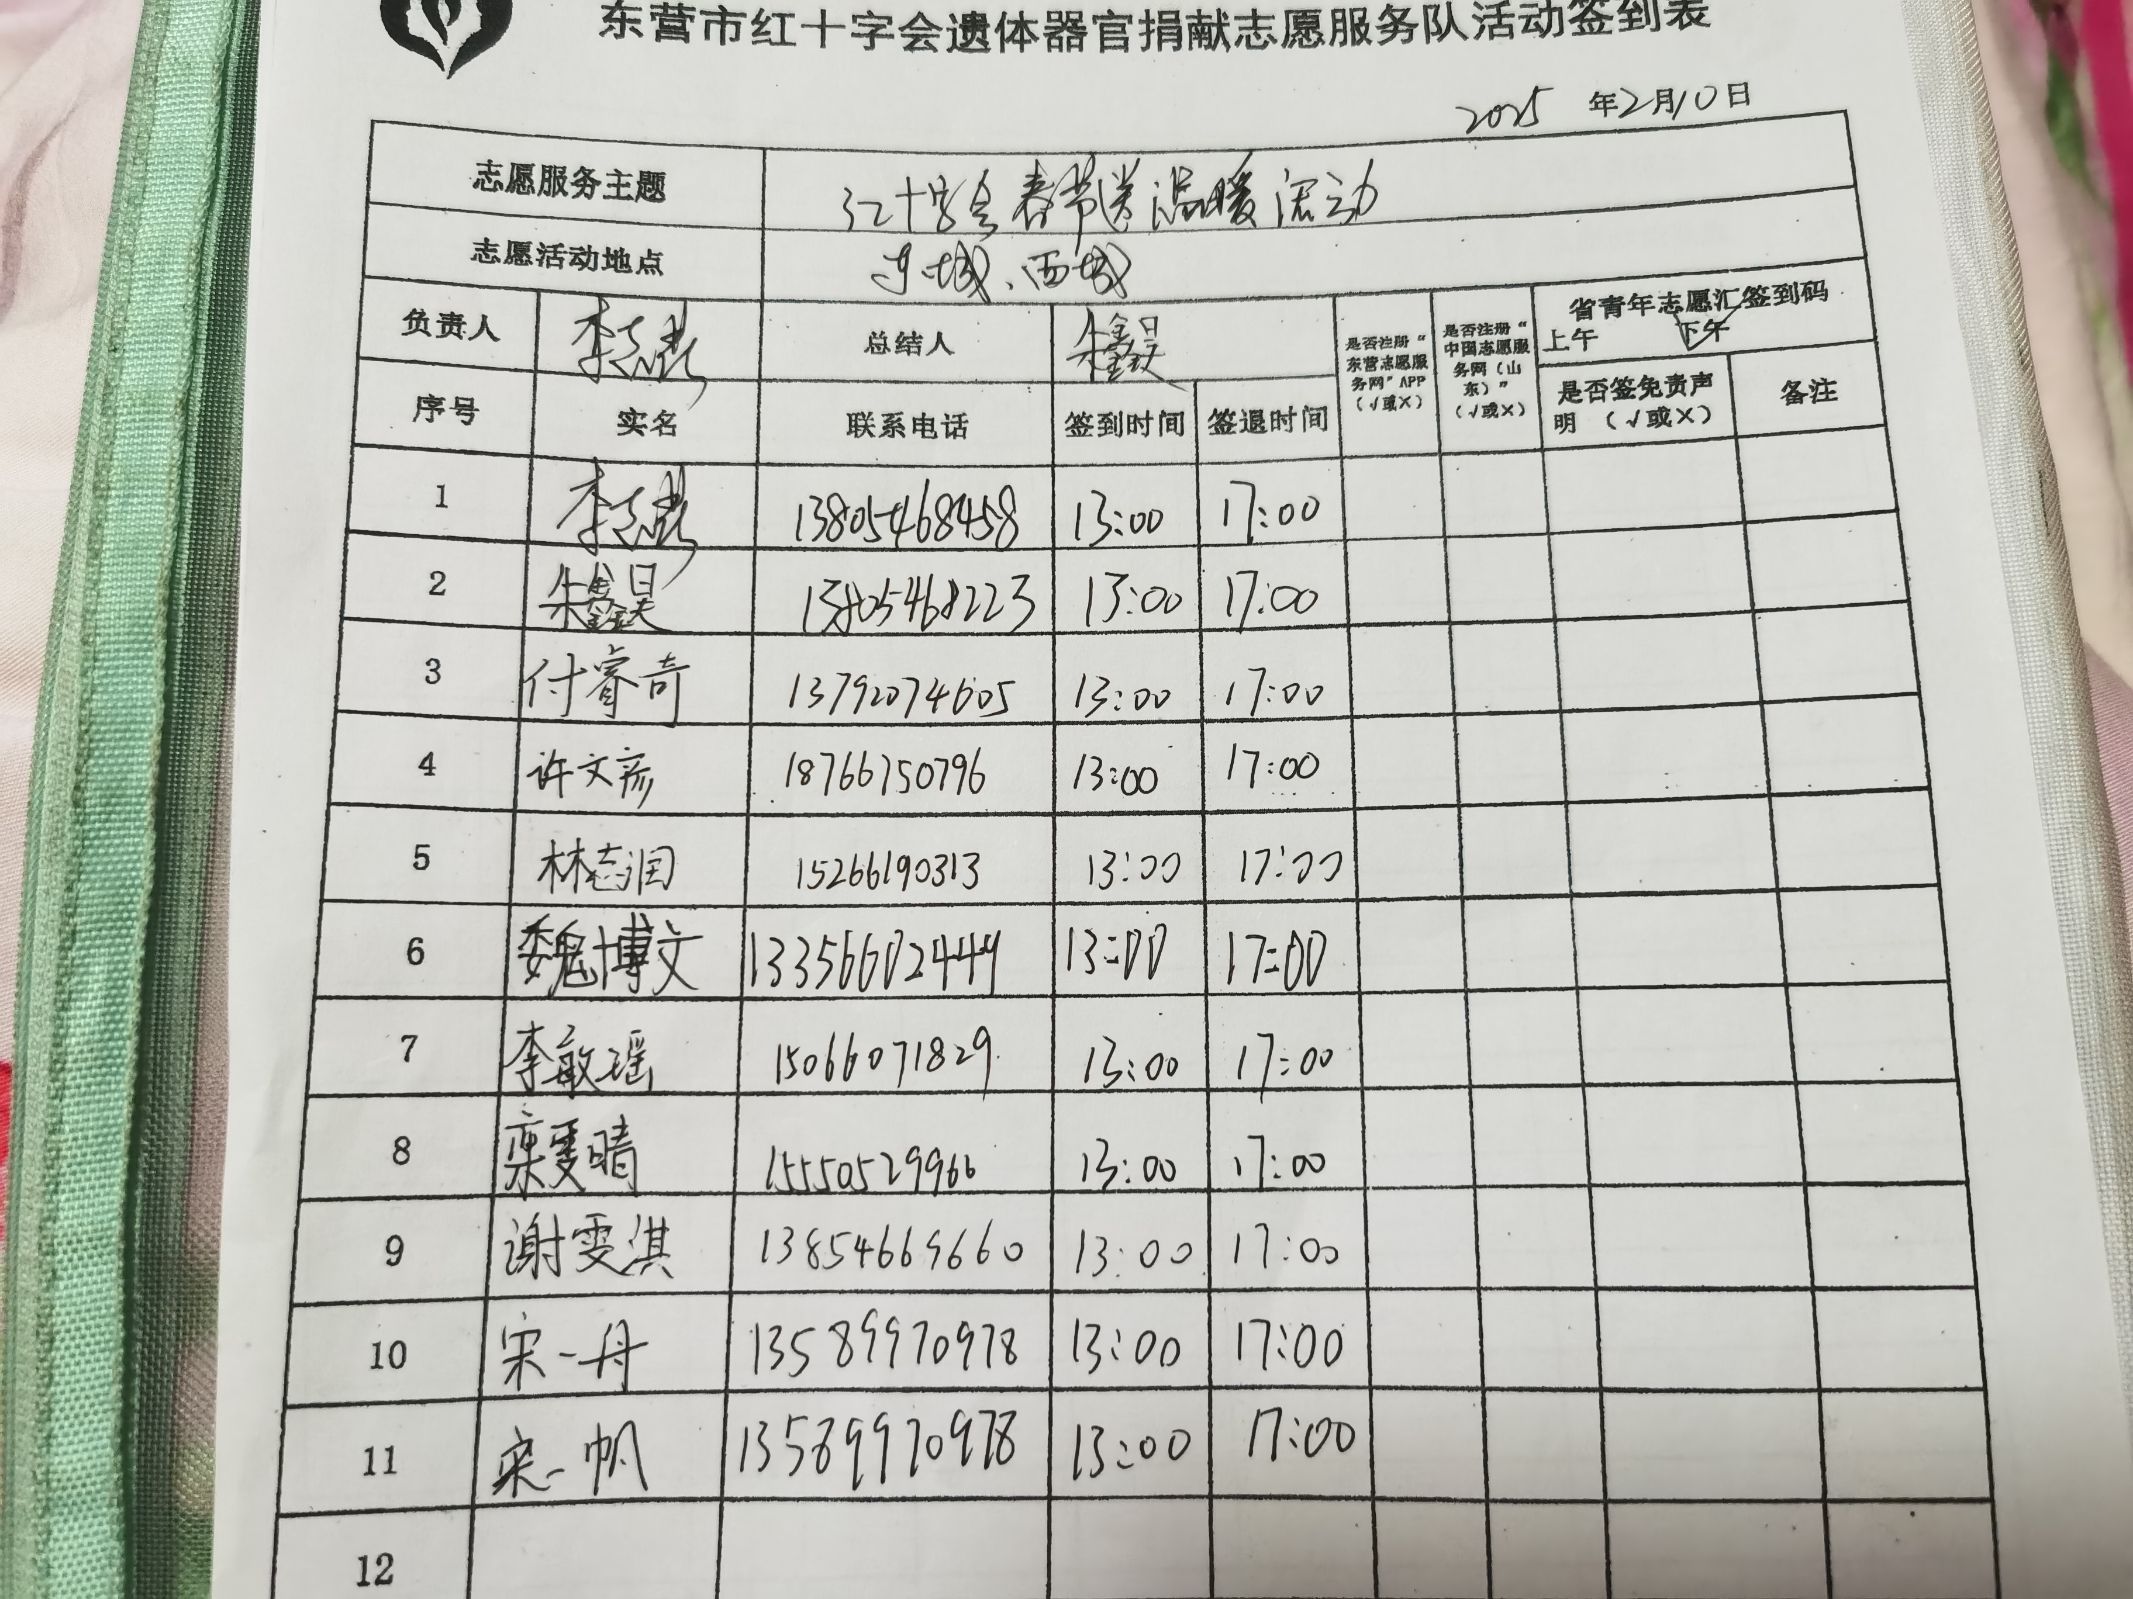 东营市红十字会遗体器官捐献志愿服务队活动签到表
2025 年2月10日
志愿服务主题 红十字会春节送温暖活动
志愿活动地点 东城、西城
负责人 总结人 朱鑫昊 是否注册“东营志愿服务网”APP（√或×） 是否注册“中国志愿服务网（山东）”（√或×） 省青年志愿汇签到码 上午 下午
序号 实名 联系电话 签到时间 签退时间 是否签免责声明（√或×） 备注
1 13805468458 13:00 17:00
2 朱鑫昊 13805468223 13:00 17:00
3 付睿奇 13792074605 13:00 17:00
4 许文彦 18766750796 13:00 17:00
5 林志润 15266190313 13:00 17:00
6 魏博文 13356602449 13:00 17:00
7 李敏瑶 15066071829 13:00 17:00
8 栾雯晴 15550529966 13:00 17:00
9 谢雯淇 13854669660 13:00 17:00
10 宋一丹 13589970978 13:00 17:00
11 宋一帆 13589970978 13:00 17:00
12